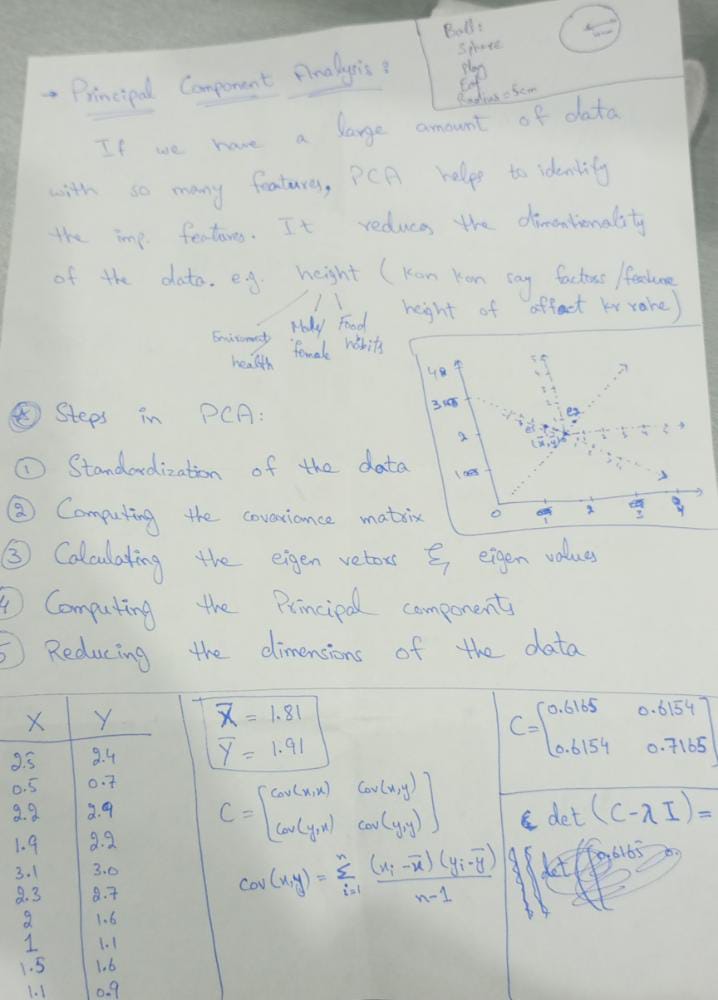 Ball:
Sphere
Play
Radius = 5cm
→ Principal Component Analysis:
If we have a large amount of data
with so many features, PCA helps to identify
the imp. features. It reduces the dimentionality
of the data. e.g. height (kon kon say factors / feature
height of affect kr rahe)
Enviroment
health
Male/
female
Food
habits
4
3
2
1
0 1 2 3 4
e1 e2
(x̄, ȳ)
Steps in PCA:
① Standardization of the data
② Computing the covariance matrix
③ Calculating the eigen vetors & eigen values
4 Computing the Principal components
5 Reducing the dimensions of the data
X Y
2.5 2.4
0.5 0.7
2.2 2.9
1.9 2.2
3.1 3.0
2.3 2.7
2 1.6
1 1.1
1.5 1.6
1.1 0.9
X̄ = 1.81
Ȳ = 1.91
C = [cov(x,x) cov(x,y)
cov(y,x) cov(y,y)]
cov(x,y) = Σ (xi - x̄)(yi - ȳ)
i=1 n n-1
C = [0.6165 0.6154
0.6154 0.7165]
det (C - λI) =
det 0.6165